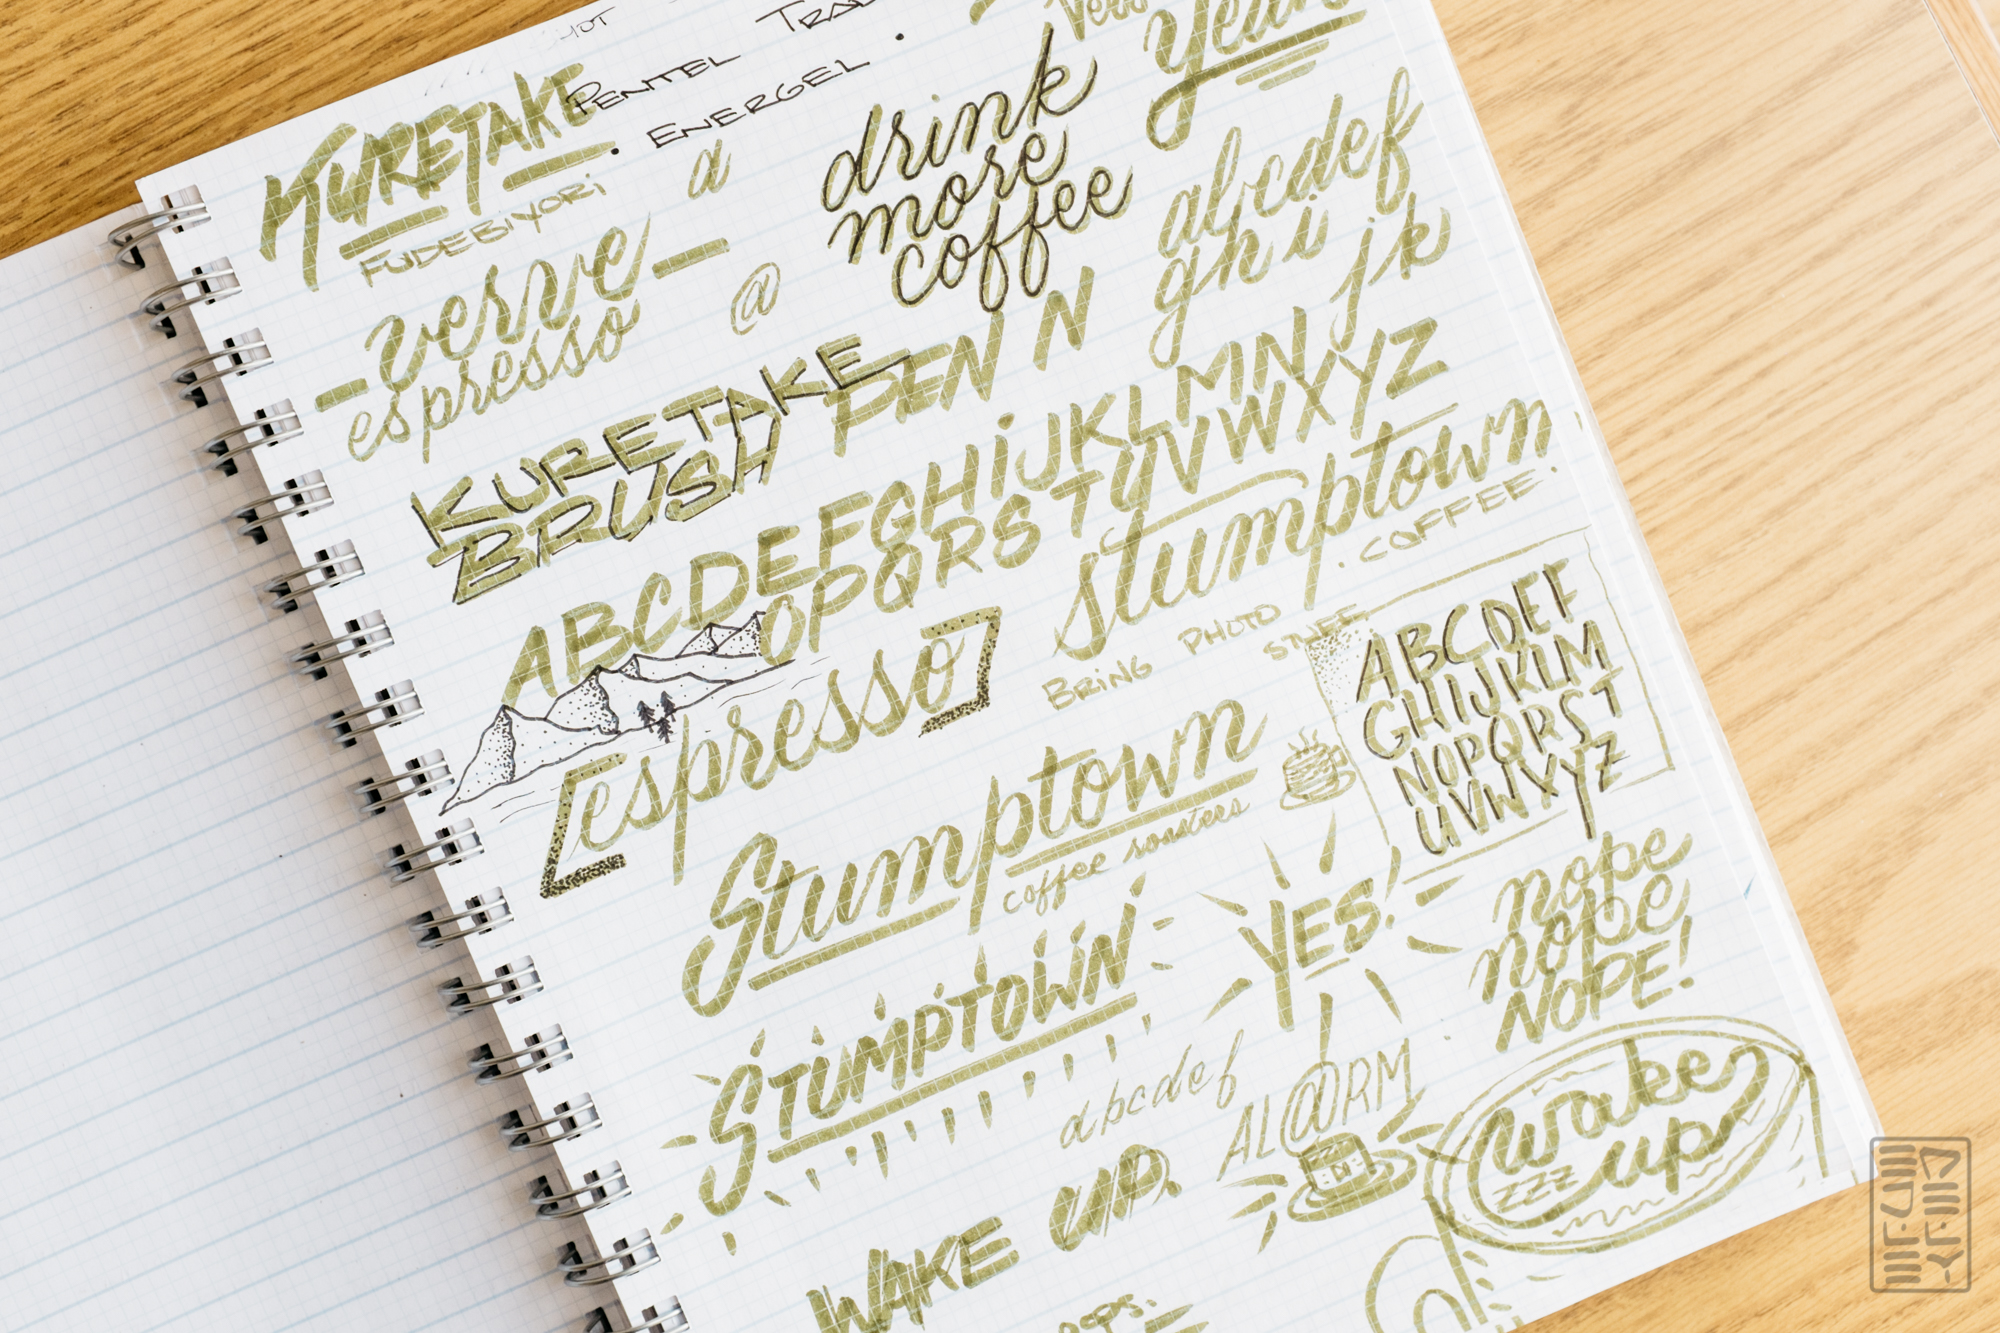 PENTEL
ENERGEL.
KURETAKE
FUDEBIYORI
a
verve
espresso
@
drink
more
coffee
Yeah
abcdef
ghi jk
KURETAKE
BRUSH PEN N
ABCDEFGHIJKLMN
OPQRSTUVWXYZ
stumptown
. COFFEE.
BRING PHOTO STUFF
espresso
ABCDEF
GHIJKLM
NOPQRST
UVWXYZ
Stumptown
coffee roasters
STUMPTOWN
YES!
nope
nope
NOPE!
abcdef
AL@RM
wake
up
zzz
WAKE UP.